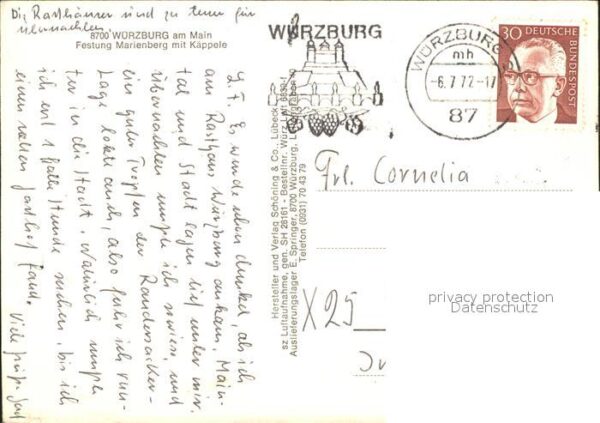 Die Rasthäuser sind zu teuer für
übernachten.
8700 WÜRZBURG am Main
Festung Marienberg mit Käppele
WÜRZBURG
WÜRZBURG
mh
-6.7.72-17
87
30 DEUTSCHE
BUNDESPOST
L. F. Es wurde eben dunkel, als ich
am Rasthaus Würzburg ankam. Main-
tal und Stadt lagen tief unter mir.
übernachten mußte ich sowieso, und
ein guter Tropfen der Randersacker-
Lage lockte auch, also fuhr ich run-
ter in die Stadt. Natürlich mußte
ich erst 1 halbe Stunde suchen, bis ich
einen netten Gasthof fand. Viele
Hersteller und Verlag Schöning & Co., Lübeck
sz Luftaufnahme, gen. SH 28161 - Bestellnr. Würz
Auslieferungslager E. Springer, 8700 Würzburg,
Telefon (0931) 70 43 79
Frl. Cornelia
X25
privacy protection
Datenschutz